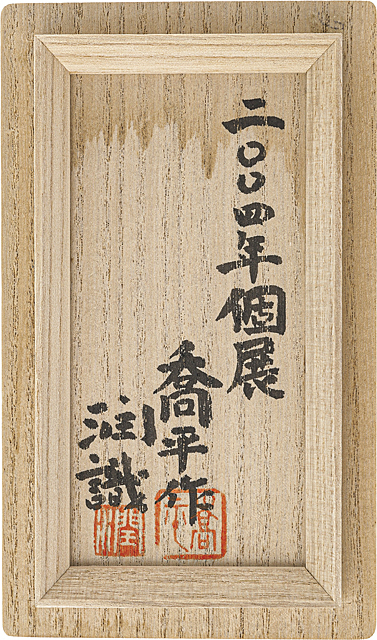 二〇〇四年個展
喬平作
潤識
潤